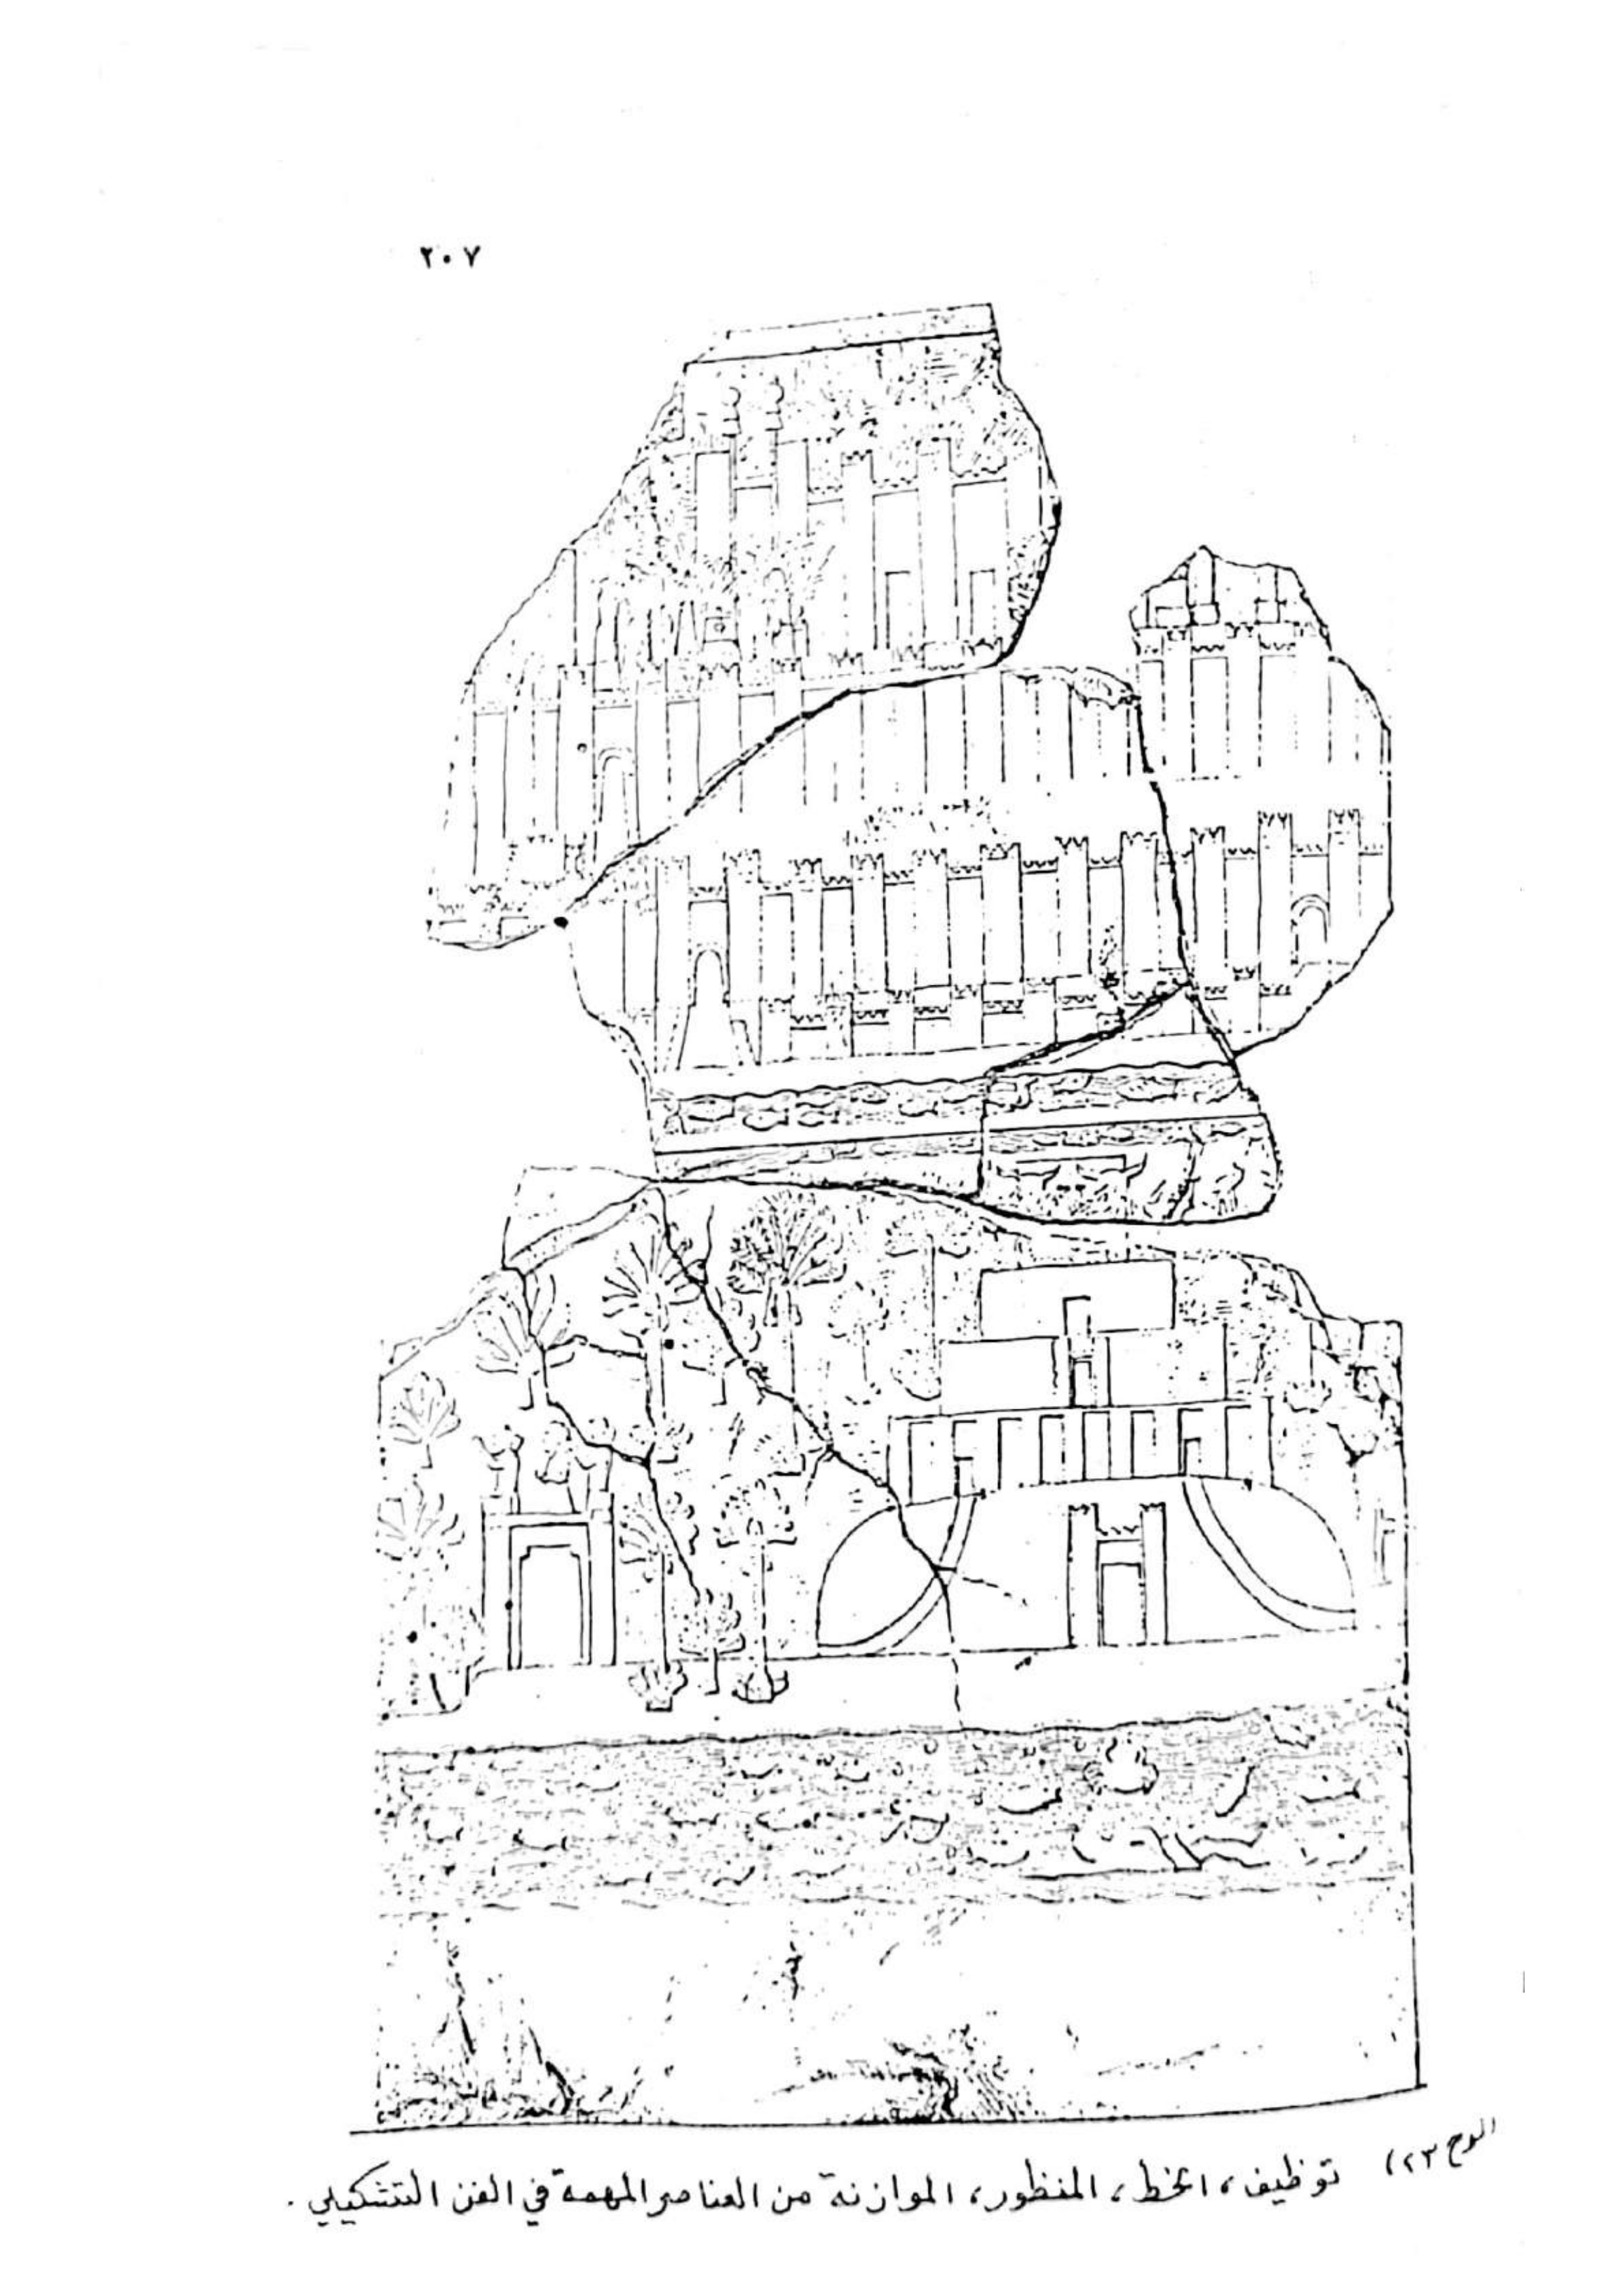 ٢٠٧
اللوح ٢٣) توظيف، الخط، المنظور، الموازنة من العناصر المهمة في الفن التشكيلي.